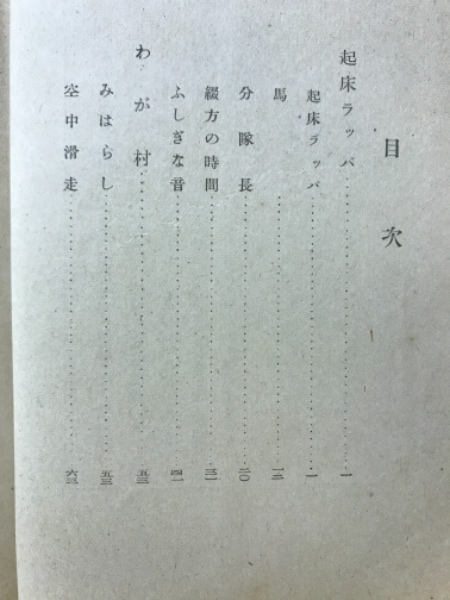 目次
起床ラッパ……一
起床ラッパ……一
馬……一二
分隊長……二〇
綴方の時間……三一
ふしぎな音……四一
わが村……五三
みはらし……五三
空中滑走……六三